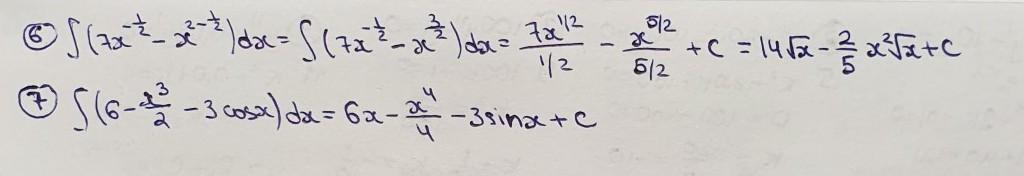 ⑥ ∫(7x^{-1/2} - x^{2-1/2})dx = ∫(7x^{-1/2} - x^{3/2})dx = 7x^{1/2}/1/2 - x^{5/2}/5/2 + C = 14√x - 2/5 x²√x + C
⑦ ∫(6 - x³/2 - 3 cosx)dx = 6x - x⁴/4 - 3sinx + C